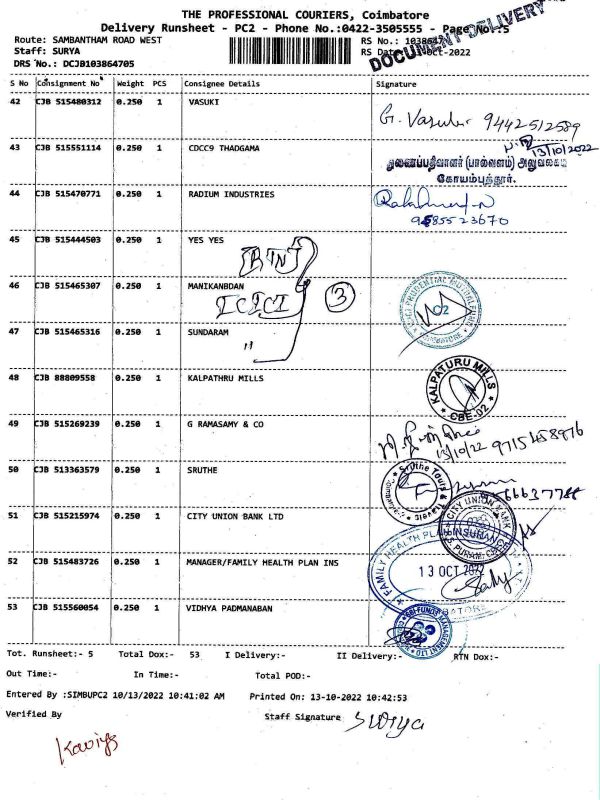 THE PROFESSIONAL COURIERS, Coimbatore
Delivery Runsheet - PC2 - Phone No.:0422-3505555 - Page No.:5
DOCUMENT DELIVERY
Route: SAMBANTHAM ROAD WEST
Staff: SURYA
DRS No.: DCJB103864705
S No Consignment No Weight PCS Consignee Details Signature
42 CJB 515480312 0.250 1 VASUKI
G. Vasuki 9442512589
43 CJB 515551114 0.250 1 CDCC9 THADGAMA
13/10/2022
துணைப்பதிவாளர் (பால்வளம்) அலுவலகம்
கோயம்புத்தூர்.
44 CJB 515470771 0.250 1 RADIUM INDUSTRIES
9585523670
45 CJB 515444503 0.250 1 YES YES
46 CJB 515465307 0.250 1 MANIKANBDAN
ICICI
3
ICICI PRUDENTIAL MUTUAL FUND
C2
COIMBATORE
47 CJB 515465316 0.250 1 SUNDARAM
"
48 CJB 88809558 0.250 1 KALPATHRU MILLS
KALPATURU MILLS
CBE-02
49 CJB 515269239 0.250 1 G RAMASAMY & CO
13/10/22 9715458976
50 CJB 513363579 0.250 1 SRUTHE
Sruthe Tours &
51 CJB 515215974 0.250 1 CITY UNION BANK LTD
CITY UNION BANK
52 CJB 515483726 0.250 1 MANAGER/FAMILY HEALTH PLAN INS
FAMILY HEALTH PLAN INSURANCE
13 OCT 2022
53 CJB 515560054 0.250 1 VIDHYA PADMANABAN
SBI FUNDS MANAGEMENT LTD
Tot. Runsheet:- 5 Total Dox:- 53 I Delivery:- II Delivery:- RTN Dox:-
Out Time:- In Time:- Total POD:-
Entered By :SIMBUPC2 10/13/2022 10:41:02 AM Printed On: 13-10-2022 10:42:53
Verified By Staff Signature Surya
Kaviya